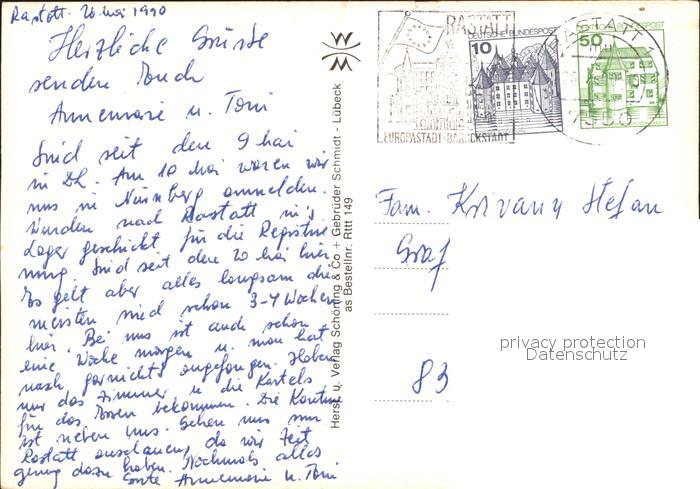 Rastatt. 20 Mai 1990
Herzliche Grüsse
senden Euch
Annemarie u. Toni
Sind seit den 9 Mai
in Dl. Am 10 Mai waren wir
uns in Nürnberg anmelden.
Wurden nach Rastatt in's
Lager geschickt für die Registrie
rung. Sind seit den 20 Mai hier
Es geht aber alles langsam die
meisten sind schon 3-4 Wochen
hier. Bei uns ist auch schon
eine Woche morgen u. man hat
noch garnichts angefangen. Haben
nur das Zimmer u. die Kartels
für das Essen bekommen. Die Kantine
ist neben uns. Gehen uns nun
Rastatt anschauen, da wir Zeit
genug dazu haben. Nochmals alles
Gute Annemarie u. Toni
Herst. u. Verlag Schöning & Co + Gebrüder Schmidt - Lübeck
as Bestellnr. Rttt 149
RASTATT
EUROPASTADT-BAROCKSTADT
10
DEUTSCHE BUNDESPOST
50
RASTATT 1
7550
Fam. Krivany Stefan
Graf
83
privacy protection
Datenschutz